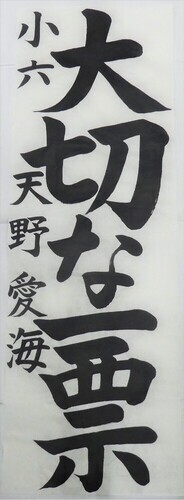 大切な一票
小六 天野愛海